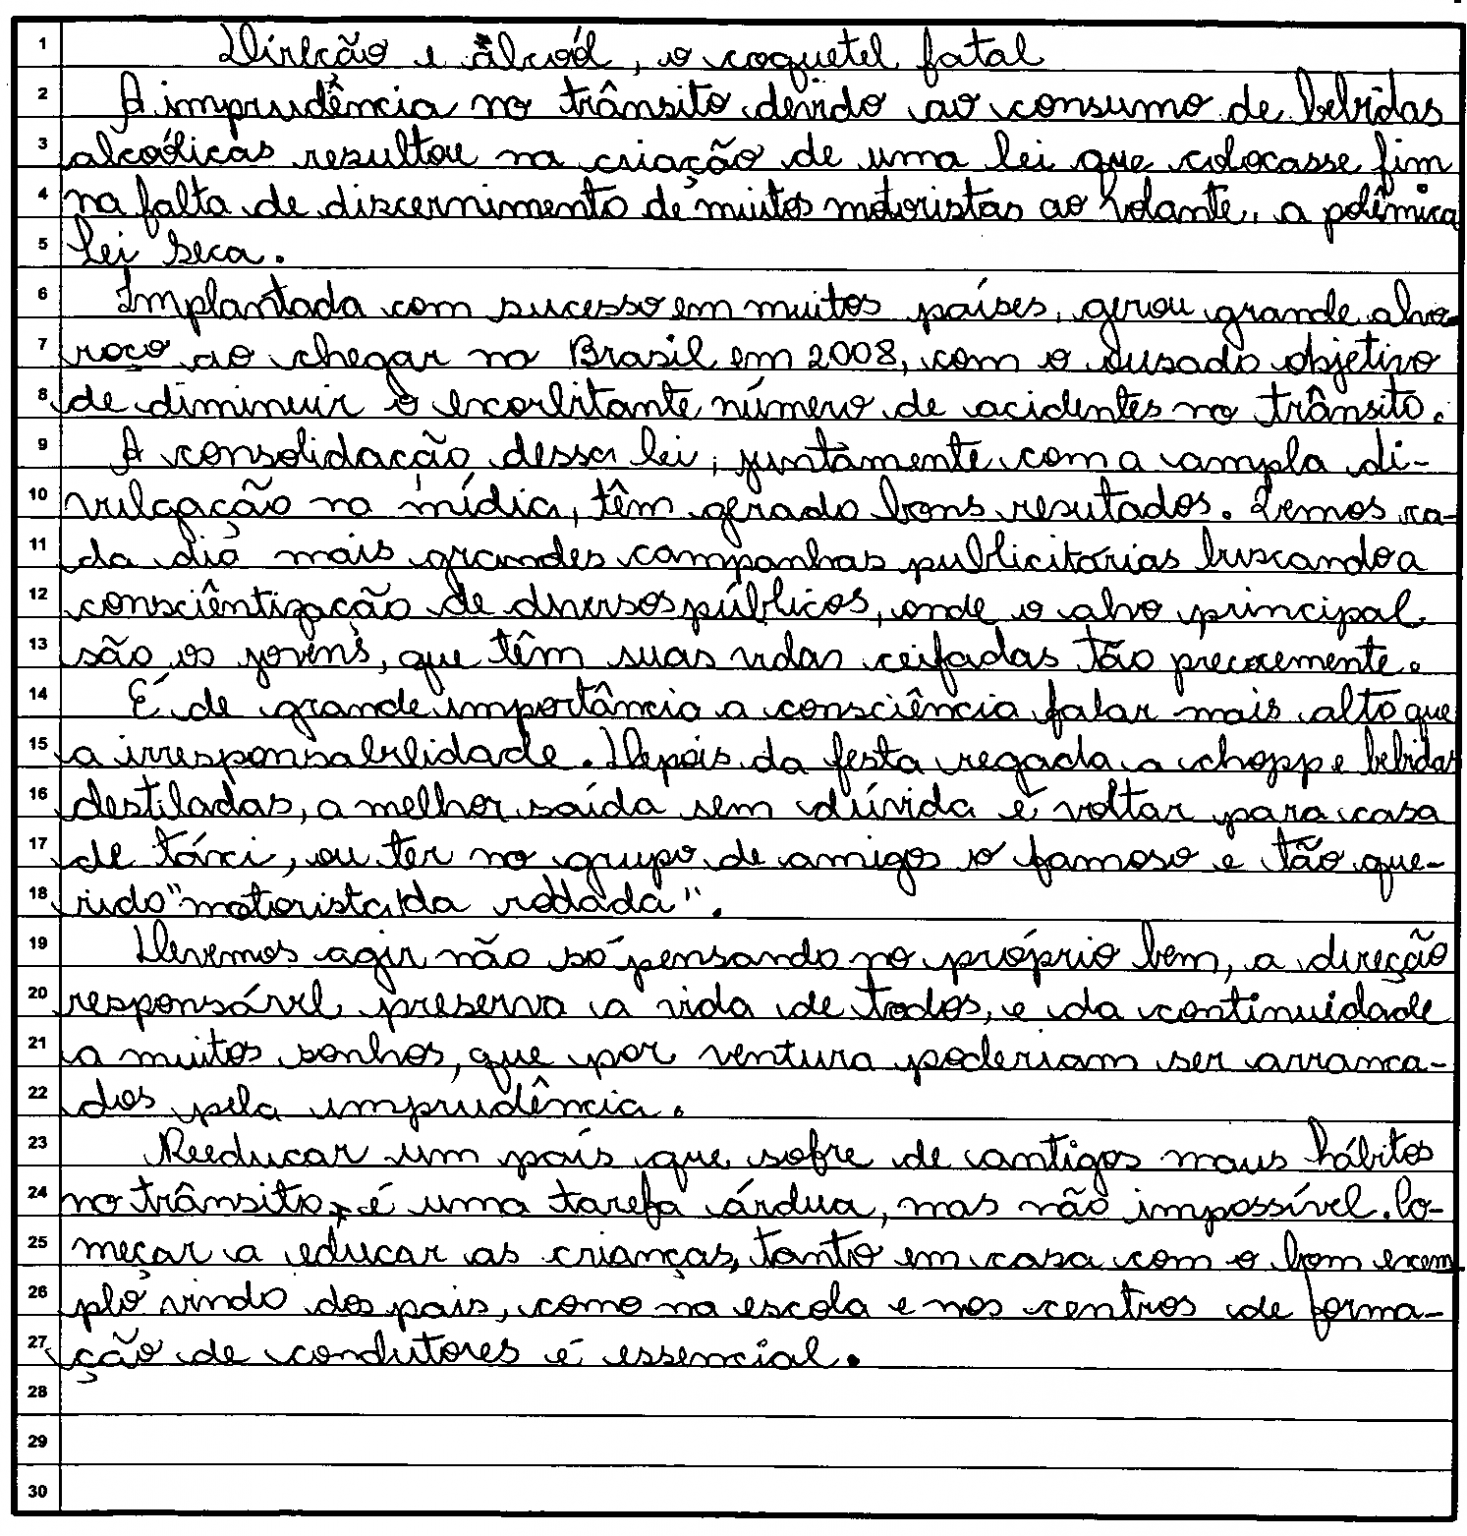 1 Direção e álcool, o coquetel fatal
2 A imprudência no trânsito devido ao consumo de bebidas
3 alcoólicas resultou na criação de uma lei que colocasse fim
4 na falta de discernimento de muitos motoristas ao volante, a polêmica
5 lei seca.
6 Implantada com sucesso em muitos países, gerou grande alvo-
7 roço ao chegar no Brasil em 2008, com o ousado objetivo
8 de diminuir o exorbitante número de acidentes no trânsito.
9 A consolidação dessa lei, juntamente com a ampla di-
10 vulgação na mídia, têm gerado bons resutados. Temos ca-
11 da dia mais grandes campanhas publicitárias buscando a
12 consciêntização de diversos públicos, onde o alvo principal
13 são os jovens, que têm suas vidas ceifadas tão precocemente.
14 É de grande importância a consciência falar mais alto que
15 a irresponsabilidade. Depois da festa regada a chopp e bebidas
16 destiladas, a melhor saída sem dúvida é voltar para casa
17 de táxi, ou ter no grupo de amigos o famoso e tão que-
18 rido "motorista da rodada".
19 Devemos agir não só pensando no próprio bem, a direção
20 responsável preserva a vida de todos, e da continuidade
21 a muitos sonhos, que por ventura poderiam ser arranca-
22 dos pela imprudência.
23 Reeducar um país que sofre de antigos maus hábitos
24 no trânsito, é uma tarefa árdua, mas não impossível. Co-
25 meçar a educar as crianças, tanto em casa com o bom exem-
26 plo vindo dos pais, como na escola e nos centros de forma-
27 ção de condutores é essencial.
28
29
30